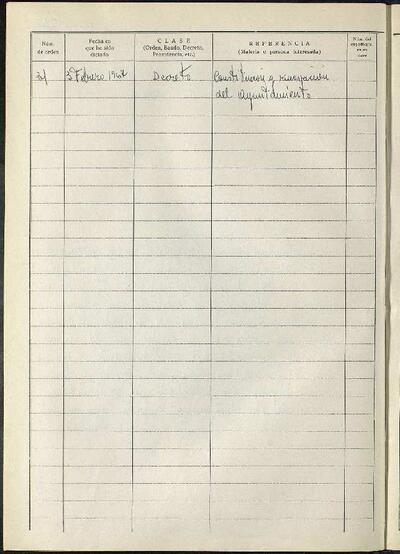 Núm. de orden
Fecha en que ha sido dictado
CLASE (Orden, Bando, Decreto, Providencia, etc.)
REFERENCIA (Materia o persona interesada)
Núm. del
3 Febrero Decreto Constitucion y
del Ayuntamiento